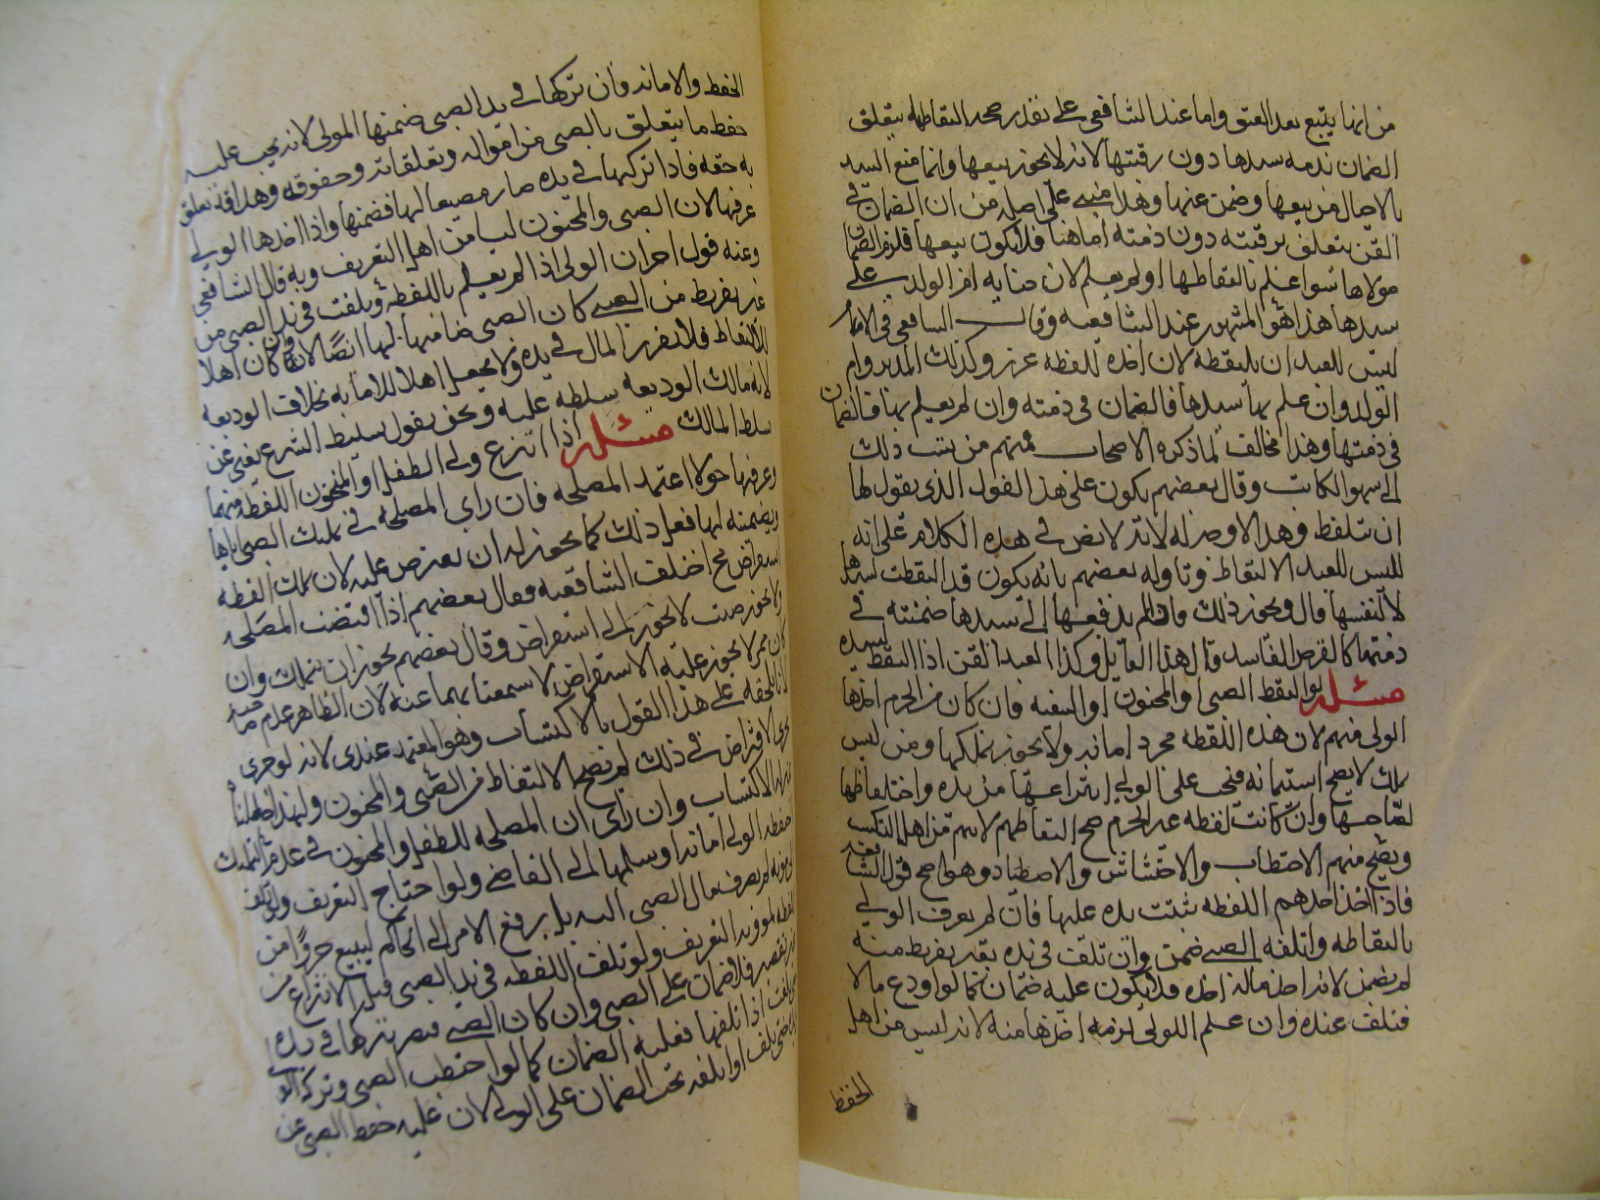 من انها يتبع بعد العتق واما عند الشافعي على تقدير صحة التقاطها يتعلق
الضمان بذمة سيدها دون رقبتها لانه لا يجوز بيعها وانما منع السيد
بالاحبال من بيعها وضمن عنها وهذا مبني على اصله من ان الضمان في
القن يتعلق برقبته دون ذمته اما هنا فلا يكون بيعها فلزم الضمان
مولاها سوا علم بالتقاطها او لم يعلم لان جنايه ام الولد على
سيدها هذا هو المشهور عند الشافعيه وقال الشافعي في الام
ليس للعبد ان يلتقطه لان اخذه للقطه غرر وكذلك المدبر وام
الولد وان علم بها سيدها فالضمان في ذمته وان لم يعلم بها فالضمان
في ذمتها وهذا مخالف لما ذكره الاصحاب فمنهم من نسب ذلك
الى سهو الكاتب وقال بعضهم يكون على هذا القول الذي يقول لها
ان تلتقط وهذا لا وجه له لانه لا نص في هذه الكلام على انه
لليس للعبد الالتقاط وتاوله بعضهم بانه يكون قد التقطت لسيدها
لا لنفسها قال ويجوز ذلك وان لم يدفعها الى سيدها ضمنته في
ذمتها كالقرض الفاسد قال هذا القايل وكذا العبد القن اذا التقط لسيده
مسئله لو التقط الصبي والمجنون او السفيه فان كان من الحرم اخذها
الولي منهم لان هذه اللقطه مجرد امانه ولا يجوز تملكها ومن ليس
بملك لا يصح استيمانه فيجب على الولي انتزاعها من يده واحتفاظها
لصاحبها وان كانت لقطه غير الحرم صح التقاطهم لانهم من اهل التكسب
ويصح منهم الاحتطاب والاحتشاش والاصطياد وهو اصح قولي الشافعيه
فاذا اخذ احدهم اللقطه ثبتت يده عليها فان لم يعرف الولي
بالتقاطه واتلفه الصبي ضمن وان تلف في يده بغير تفريط منه
لم يضمن لانه اخذ ماله اخذه فلا يكون عليه ضمان كما لو اودع مالا
فتلف عنده وان علم الولي لزمه اخذها منه لانه ليس من اهل
الحفظ
الحفظ والامانه فان تركها في يد الصبي ضمنها المولى لانه يجب عليه
حفظ ما يتعلق بالصبي من امواله وتعلقاته وحقوقه وهذا قد تعلق
به حقه فاذا تركها في يده صار مضيعا لها فضمنها واذا اخذها الولي
عرفها لان الصبي والمجنون ليسا من اهل التعريف وبه قال الشافعي
وعنه قول اخر ان الولي اذا لم يعلم باللقطه وتلفت في يد الصبي من
غير تفريط من الصبي كان الصبي ضامنا لها ايضا لانه وان كان اهلا
للالتقاط فلا يقرر المال في يده ولا يجعل اهلا للامانه بخلاف الوديعه
لانه مالك الوديعه سلطه عليه ونحن نقول تسليط الشرع يغني عن
تسلط المالك مسئله اذا انتزع ولي الطفل او المجنون اللقطه منهما
وعرفها حولا اعتمد المصلحه فان راى المصلحه في تمليك الصبي اياها
ويضمنه لها فعل ذلك كما يجوز له ان يقترض عليه لان تملك اللقطه
استقراض اختلف الشافعيه فقال بعضهم اذا اقتضت المصلحه
ولا يجوز حيث لا يجوز الى استقراض وقال بعضهم يجوز ان يتملك وان
كان ممن لا يجوز عليه الاستقراض لا سمعنا بهما عنه لان الظاهر عدم صاحبه
لانا نلحقه على هذا القول بالاكتساب وهو المعتمد عندي لانه لو جرى
مجرى الاقتراض في ذلك لم نصحح الالتقاط من الصبي والمجنون ولهذا عللناه
بانه الاكتساب وان راى ان المصلحه للطفل والمجنون في عدم التمليك
حفظه الولي امانه او سلمها الى القاضي ولو احتاج التعريف ولو تلف
لم يصرف مال الصبي اليه بل يرفع الامر الى الحاكم ليبيع جزوا من
اللقطه لموونه التعريف ولو تلف اللقطه في يد الصبي قبل الانتزاع من
غير تقصير فلا ضمان على الصبي وان كان الصبي قصر بتركها في يده
حتى تلفت اذا تلفها فعليه الضمان كما لو احتطب الصبي وتركه الو
في يده حتى تلف او اتلفه يجب الضمان على الولي لان عليه حفظ الصبي عن